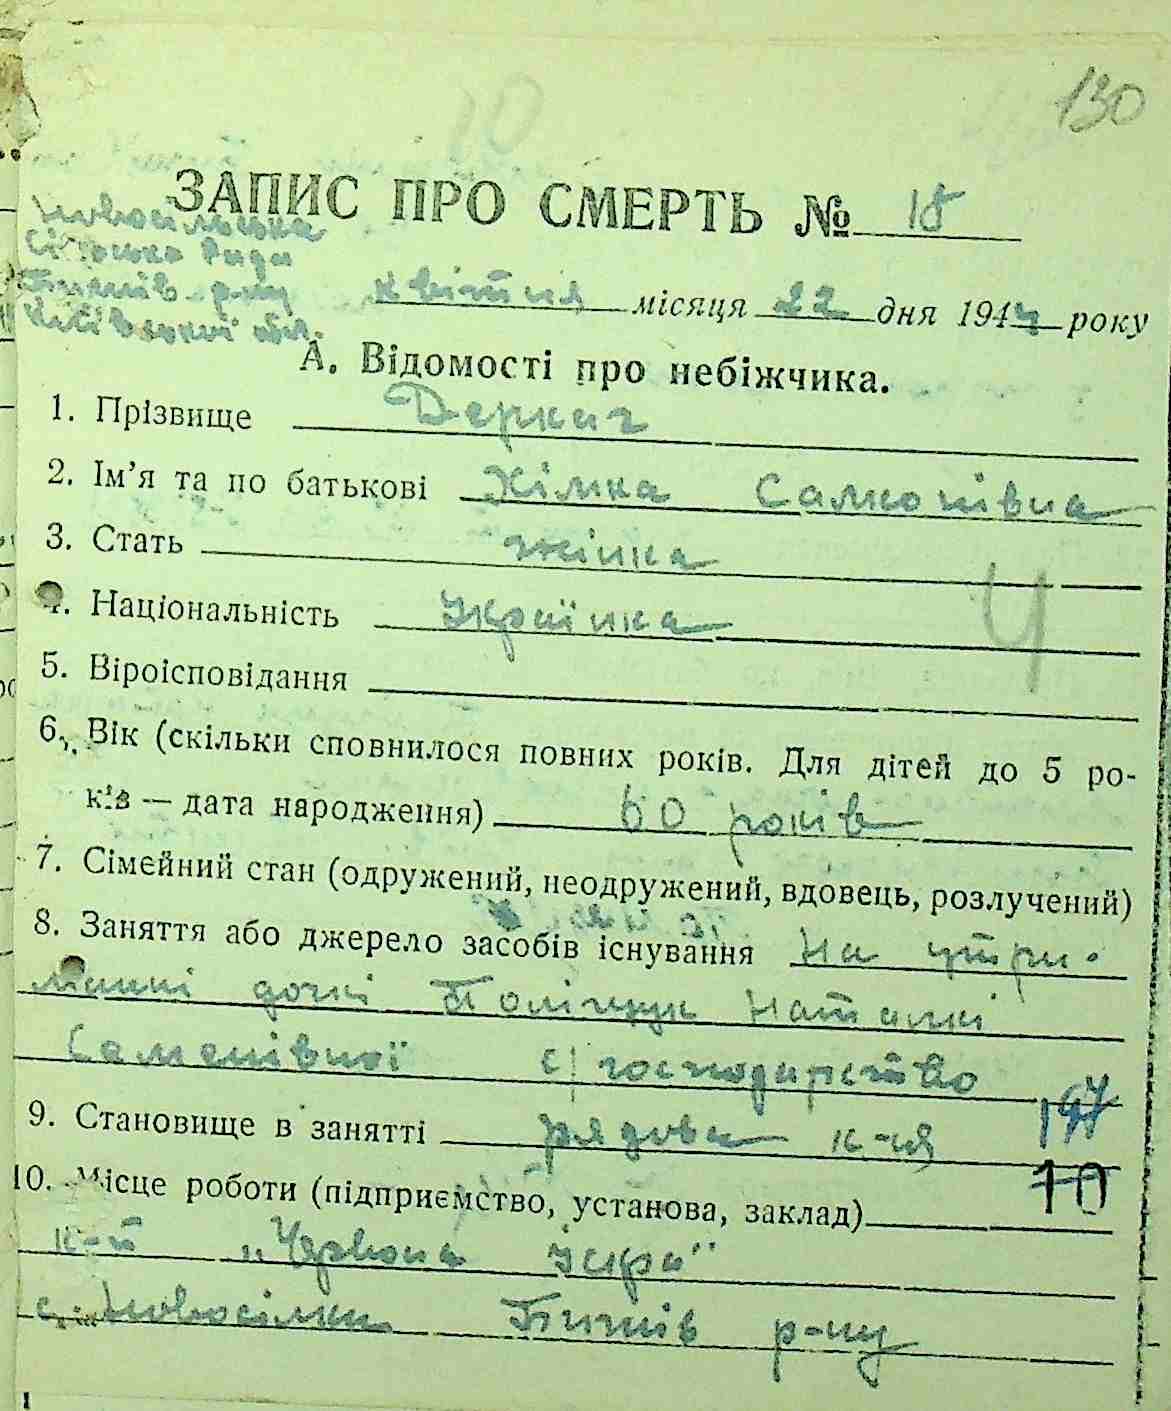 130
ЗАПИС ПРО СМЕРТЬ № 18
Новосільська
сільська Рада
р-ну
Київської обл.
квітня місяця 22 дня 1944 року
А. Відомості про небіжчика.
1. Прізвище Деркач
2. Ім’я та по батькові Хімка
3. Стать жінка
4. Національність Українка
Ч
5. Віроісповідання
6. Вік (скільки сповнилося повних років. Для дітей до 5 ро-
ків — дата народження) 60 років
7. Сімейний стан (одружений, неодружений, вдовець, розлучений)
8. Заняття або джерело засобів існування На утри-
манні дочкі Поліщук Наталкі
Семенівної с/господарство
9. Становище в занятті рядова к-ця
10. Місце роботи (підприємство, установа, заклад)
10
к-п „Червона Іскра"
с. Новосілки р-ну